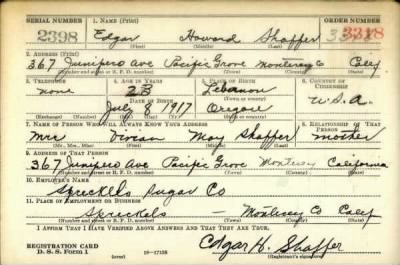 SERIAL NUMBER 1. NAME (Print) ORDER NUMBER
2398 Edgar Howard Shaffer 3318
(First) (Middle) (Last)
2. ADDRESS (Print)
367 Junipero Ave Pacific Grove Monterey Co Calif
(Number and street or R. F. D. number) (Town) (County) (State)
3. TELEPHONE 4. AGE IN YEARS 5. PLACE OF BIRTH 6. COUNTRY OF CITIZENSHIP
none 23 Lebanon
DATE OF BIRTH (Town or county)
July 8 1917 Oregon U.S.A.
(Exchange) (Number) (Mo.) (Day) (Yr.) (State or country)
7. NAME OF PERSON WHO WILL ALWAYS KNOW YOUR ADDRESS 8. RELATIONSHIP OF THAT PERSON
Mrs Vivian May Shaffer mother
(Mr., Mrs., Miss) (First) (Middle) (Last)
9. ADDRESS OF THAT PERSON
367 Junipero Ave Pacific Grove Monterey California
(Number and street or R. F. D. number) (Town) (County) (State)
10. EMPLOYER'S NAME
Spreckels Sugar Co
11. PLACE OF EMPLOYMENT OR BUSINESS
Spreckels — Monterey Co Calif
(Number and street or R. F. D. number) (Town) (County) (State)
I AFFIRM THAT I HAVE VERIFIED ABOVE ANSWERS AND THAT THEY ARE TRUE.
REGISTRATION CARD Edgar H. Shaffer
D. S. S. Form 1 16—17105 (Registrant's signature)